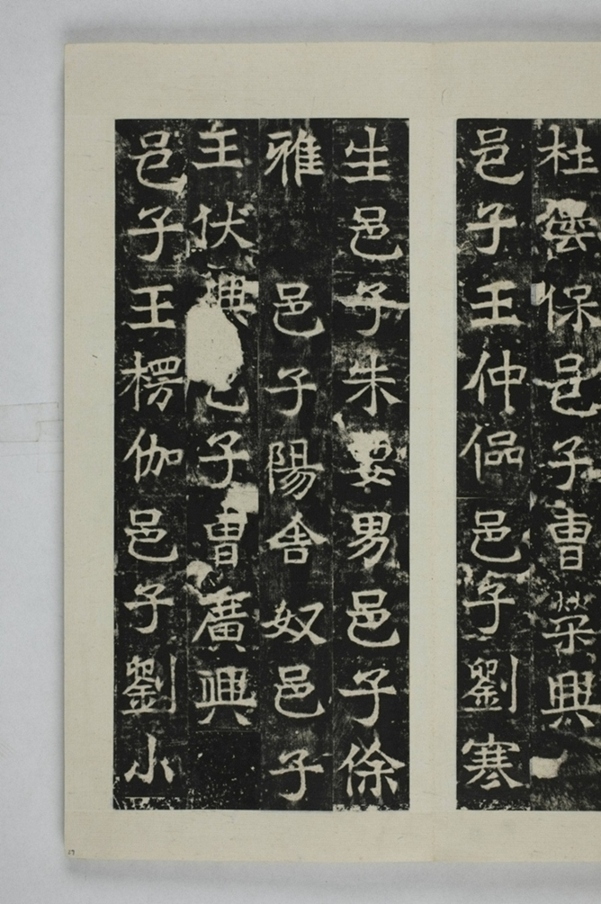 杜雲保邑子曹興
邑子王仲邑子劉寒
生邑子朱男邑子徐
雅 邑子陽舍奴邑子
王伏興邑子曹廣興
邑子王楞伽邑子劉小